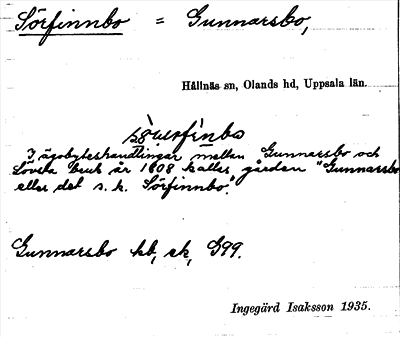 Sörfinnbo = Gunnarsbo,
Hållnäs sn, Olands hd, Uppsala län.
I ägobyteshandlingar mellan Gunnarsbo och
Lövsta bruk år 1808 kallas gården "Gunnarsbo
eller det s. k. Sörfinnbo".
Gunnarsbo hb, ek, G99.
Ingegärd Isaksson 1935.